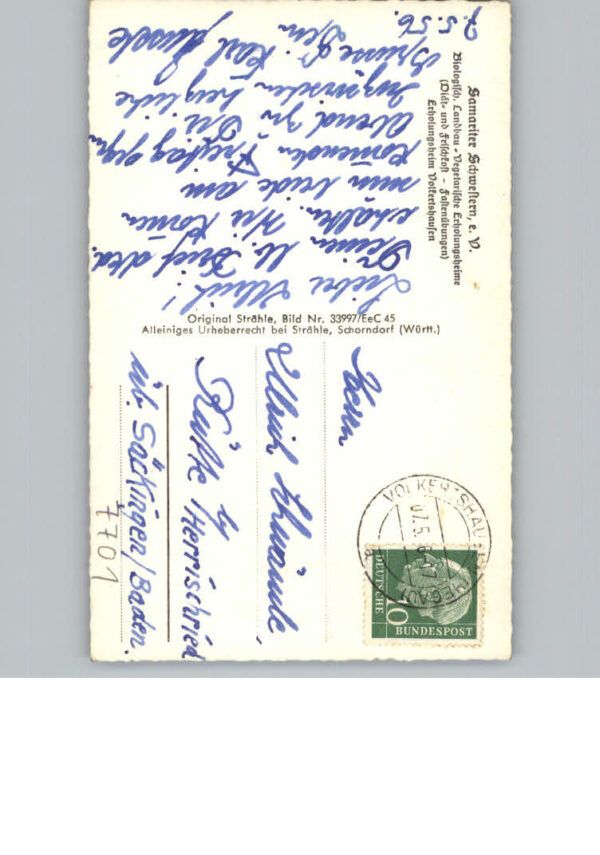 Samariter Schwestern, e. V.
Biologisch. Landbau - Vegetarische Erholungsheime
(Diät- und Frischkost - Fastenübungen)
Erholungsheim Volkertshausen
7.5.56.
Lieber Ullrich!
Deinen lb. Brief
erhalten. Wir kommen
nun beide am
kommenden Freitag gegen
Abend zu Dir.
Inzwischen herzliche
Grüsse Dein Karl
Original Strähle, Bild Nr. 33997/EeC 45
Alleiniges Urheberrecht bei Strähle, Schorndorf (Württ.)
Herrn
Ullrich
b/Herrischried
üb. Säckingen/Baden.
7701
DEUTSCHE
BUNDESPOST